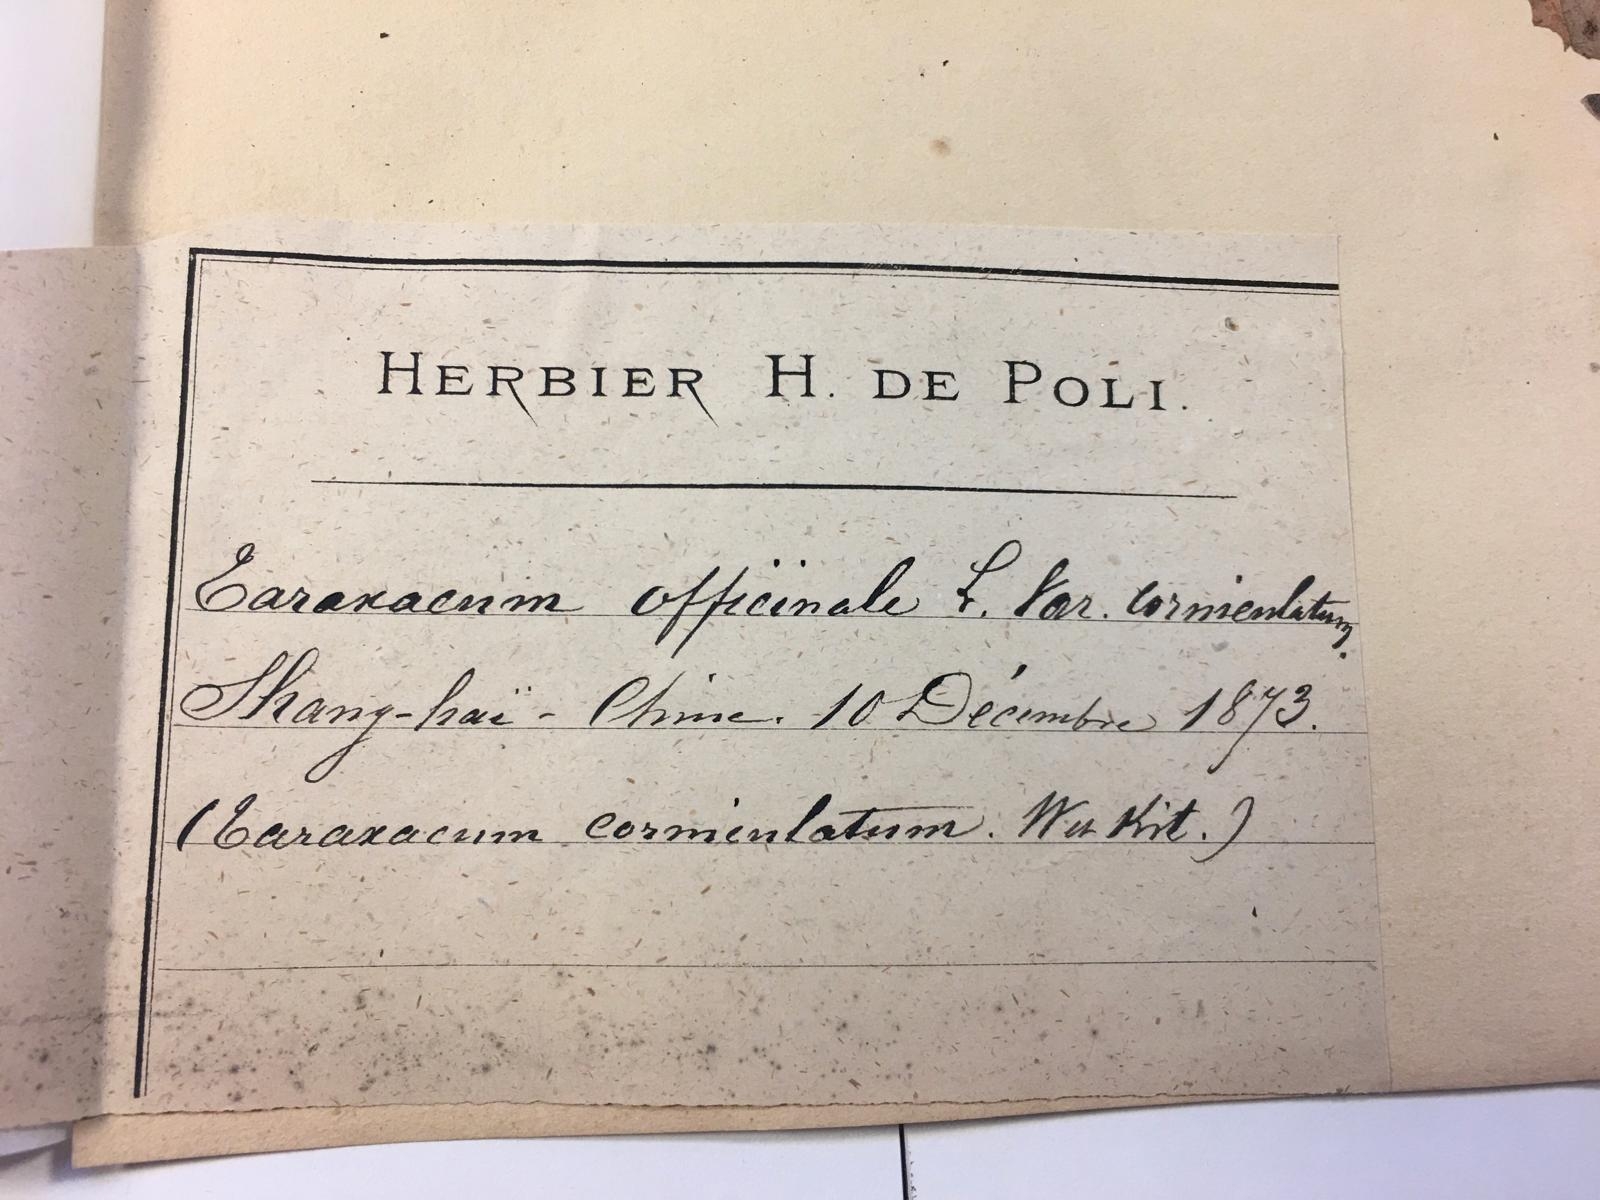 HERBIER H. DE POLI.
Taraxacum officinale L. Var. corniculatum.
Shang-haï - Chine. 10 Décembre 1873.
(Taraxacum corniculatum. W et Kit.)